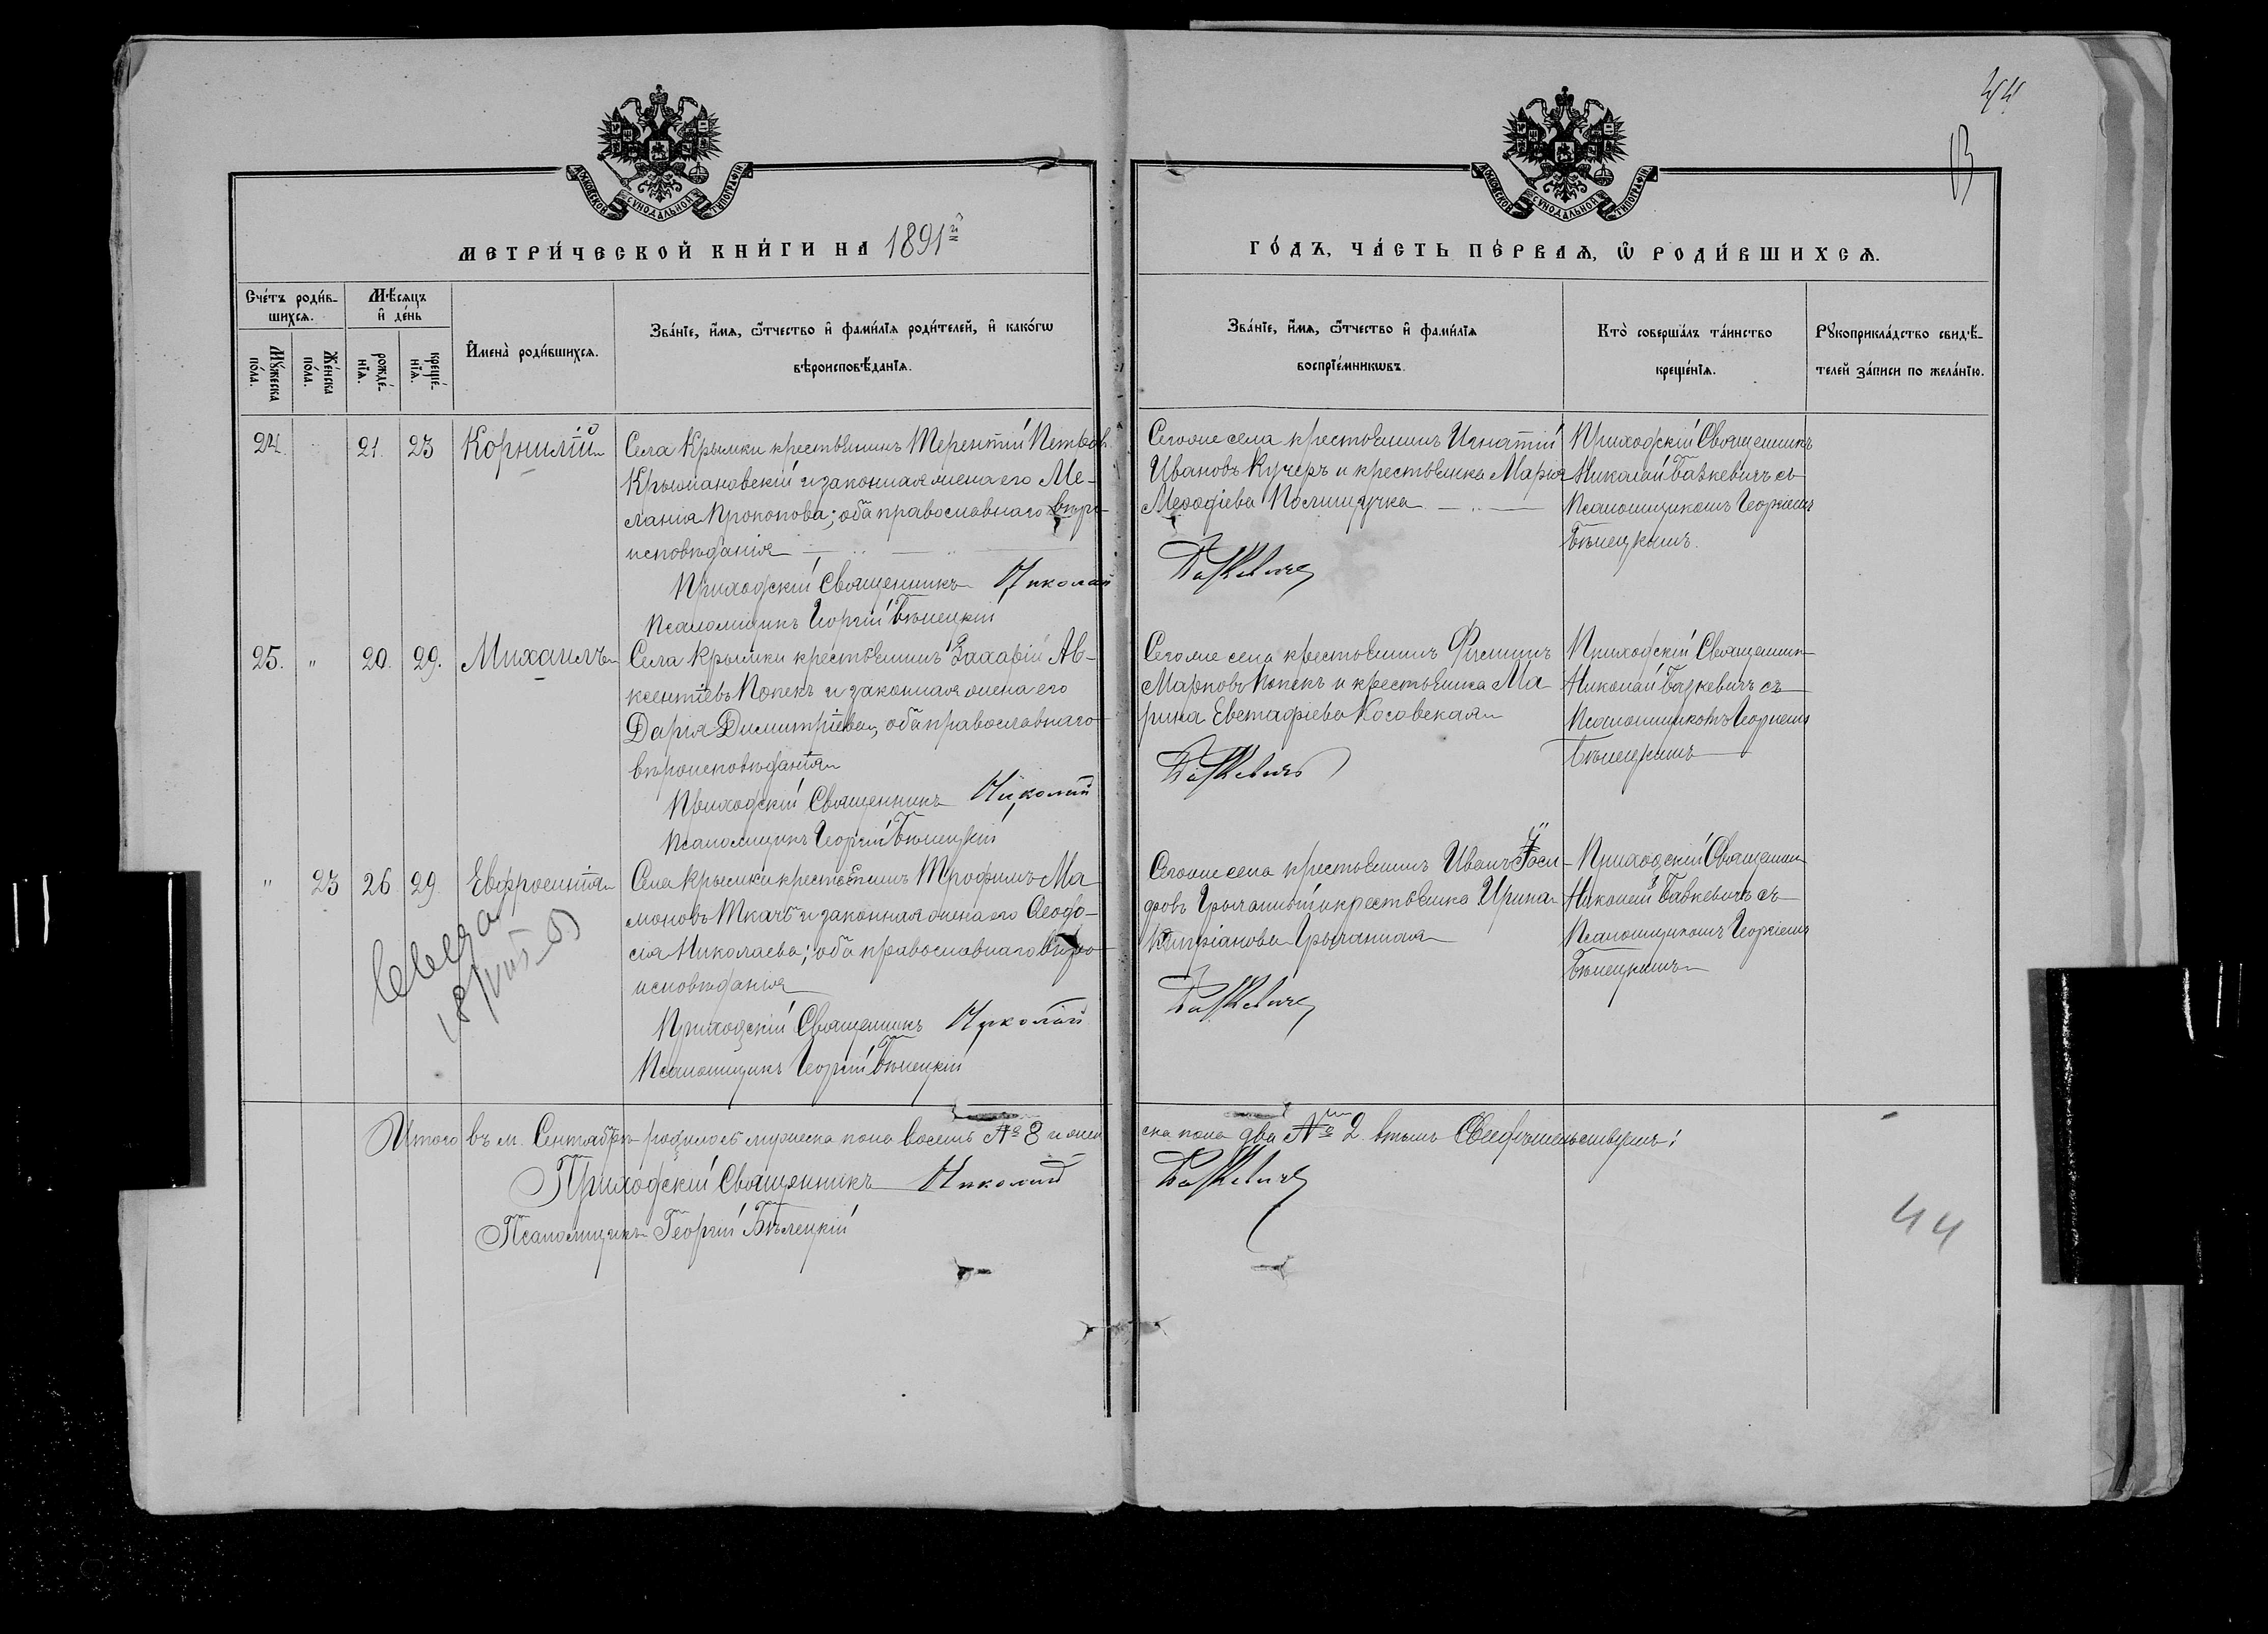 44
13
МОСКОВСКОЙ СѴНОДАЛЬНОЙ ТИПОГРАФІИ
МОСКОВСКОЙ СѴНОДАЛЬНОЙ ТИПОГРАФІИ
МЕТРИ́ЧЕСКОЙ КНИ́ГИ НА 1891й
ГО́ДЪ, ЧА́СТЬ ПЕ́РВАѦ, Ѽ РОДИ́ВШИХСѦ.
Сче́тъ роди́в-
шихсѧ.
Мꙋ́жеска
по́ла.
Же́нска
по́ла.
Мѣ́сѧцъ
и҆ де́нь
рожде́-
нїѧ.
креще́-
нїѧ.
И҆мена̀ роди́вшихсѧ.
Зва́нїе, и҆́мѧ, ѻ҆́тчество и҆ фами́лїѧ роди́телей, и҆ како́гѡ
вѣроисповѣ́данїѧ.
Зва́нїе, и҆́мѧ, ѻ҆́тчество и҆ фами́лїѧ
воспрїе́мникѡвъ.
Кто̀ соверша́лъ та́инство
креще́нїѧ.
Рꙋкоприкла́дство свидѣ́-
телей за́писи по жела́нїю.
24. 21. 23 Корнилій
Села Крымки крестьянинъ Терентій Петровъ
Крыжановскій и законная жена его Ме-
ланія Прокопова; оба православнаго вѣро-
исповѣданія
Приходскій Священникъ Николай
Псаломщикъ Георгій Бѣлецкій
Сегоже села крестьянинъ Игнатій
Ивановъ Кучеръ и крестьянка Марія
Меѳодіева Полищучка
Базкевичъ
Приходскій Священникъ
Николай Базкевичъ съ
Псаломщикомъ Георгіемъ
Бѣлецкимъ.
25. " 20. 29. Михаилъ
Села Крымки крестьянинъ Захарій Ав-
ксентіевъ Попекъ и законная жена его
Дарія Димитріева, оба православнаго
вѣроисповѣданія
Приходскій Священникъ Николай
Псаломщикъ Георгій Бѣлецкій
Сегоже села крестьянинъ Филиппъ
Марковъ Попекъ и крестьянка Ма-
рина Евстафіева Косовская
Базкевичъ
Приходскій Священник
Николай Базкевичъ съ
Псаломщикомъ Георгіемъ
Бѣлецкимъ
" 23 26. 29. Евфросинія
Села Крымки крестьянинъ Трофимъ Ма-
моновъ Ткачъ и законная жена его Ѳеодо-
сія Николаева; оба православнаго вѣро-
исповѣданія
Приходскій Священникъ Николай
Псаломщикъ Георгій Бѣлецкій
Сегоже села крестьянинъ Иванъ
и крестьянка Ирина
Кипріанова
Базкевичъ
Приходскій Священник
Николай Базкевичъ съ
Псаломщикомъ Георгіемъ
Бѣлецкимъ
Итого въ м. Сентябрѣ родилось мужеска пола восемь № 8 и жен
ска пола два № 2. въ чемъ Свидѣтельствуемъ:
Приходскій Священникъ Николай
Базкевичъ
Псаломщикъ Георгій Бѣлецкій
44